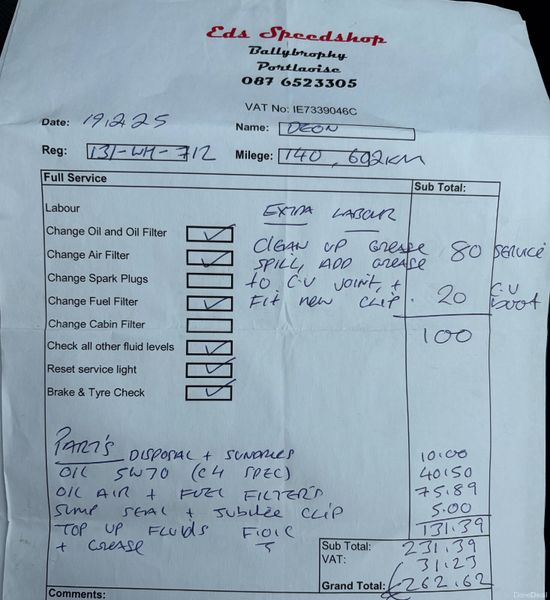 Eds Speedshop
Ballybrophy
Portlaoise
087 6523305
VAT No: IE7339046C
Date: 19.2.25
Name: DEON
Reg: 131-WH-712
Milege: 140,602KM
Full Service
Sub Total:
Labour
EXTRA LABOUR
Change Oil and Oil Filter
CLEAN UP GREASE 80 SERVICE
Change Air Filter
SPILL, ADD GREASE
Change Spark Plugs
TO C.V JOINT, +
Change Fuel Filter
FIT NEW CLIP. 20 C.V BOOT
Change Cabin Filter
100
Check all other fluid levels
Reset service light
Brake & Tyre Check
PARTS DISPOSAL + SUNDRIES 10.00
OIL 5W70 (C4 SPEC) 40.50
OIL AIR + FUEL FILTER'S 75.89
SUMP SEAL + JUBILEE CLIP 5.00
TOP UP FLUIDS F.O.C 131.39
+ GREASE
Sub Total: 231.39
VAT: 31.23
Grand Total: €262.62
Comments:
DoneDeal